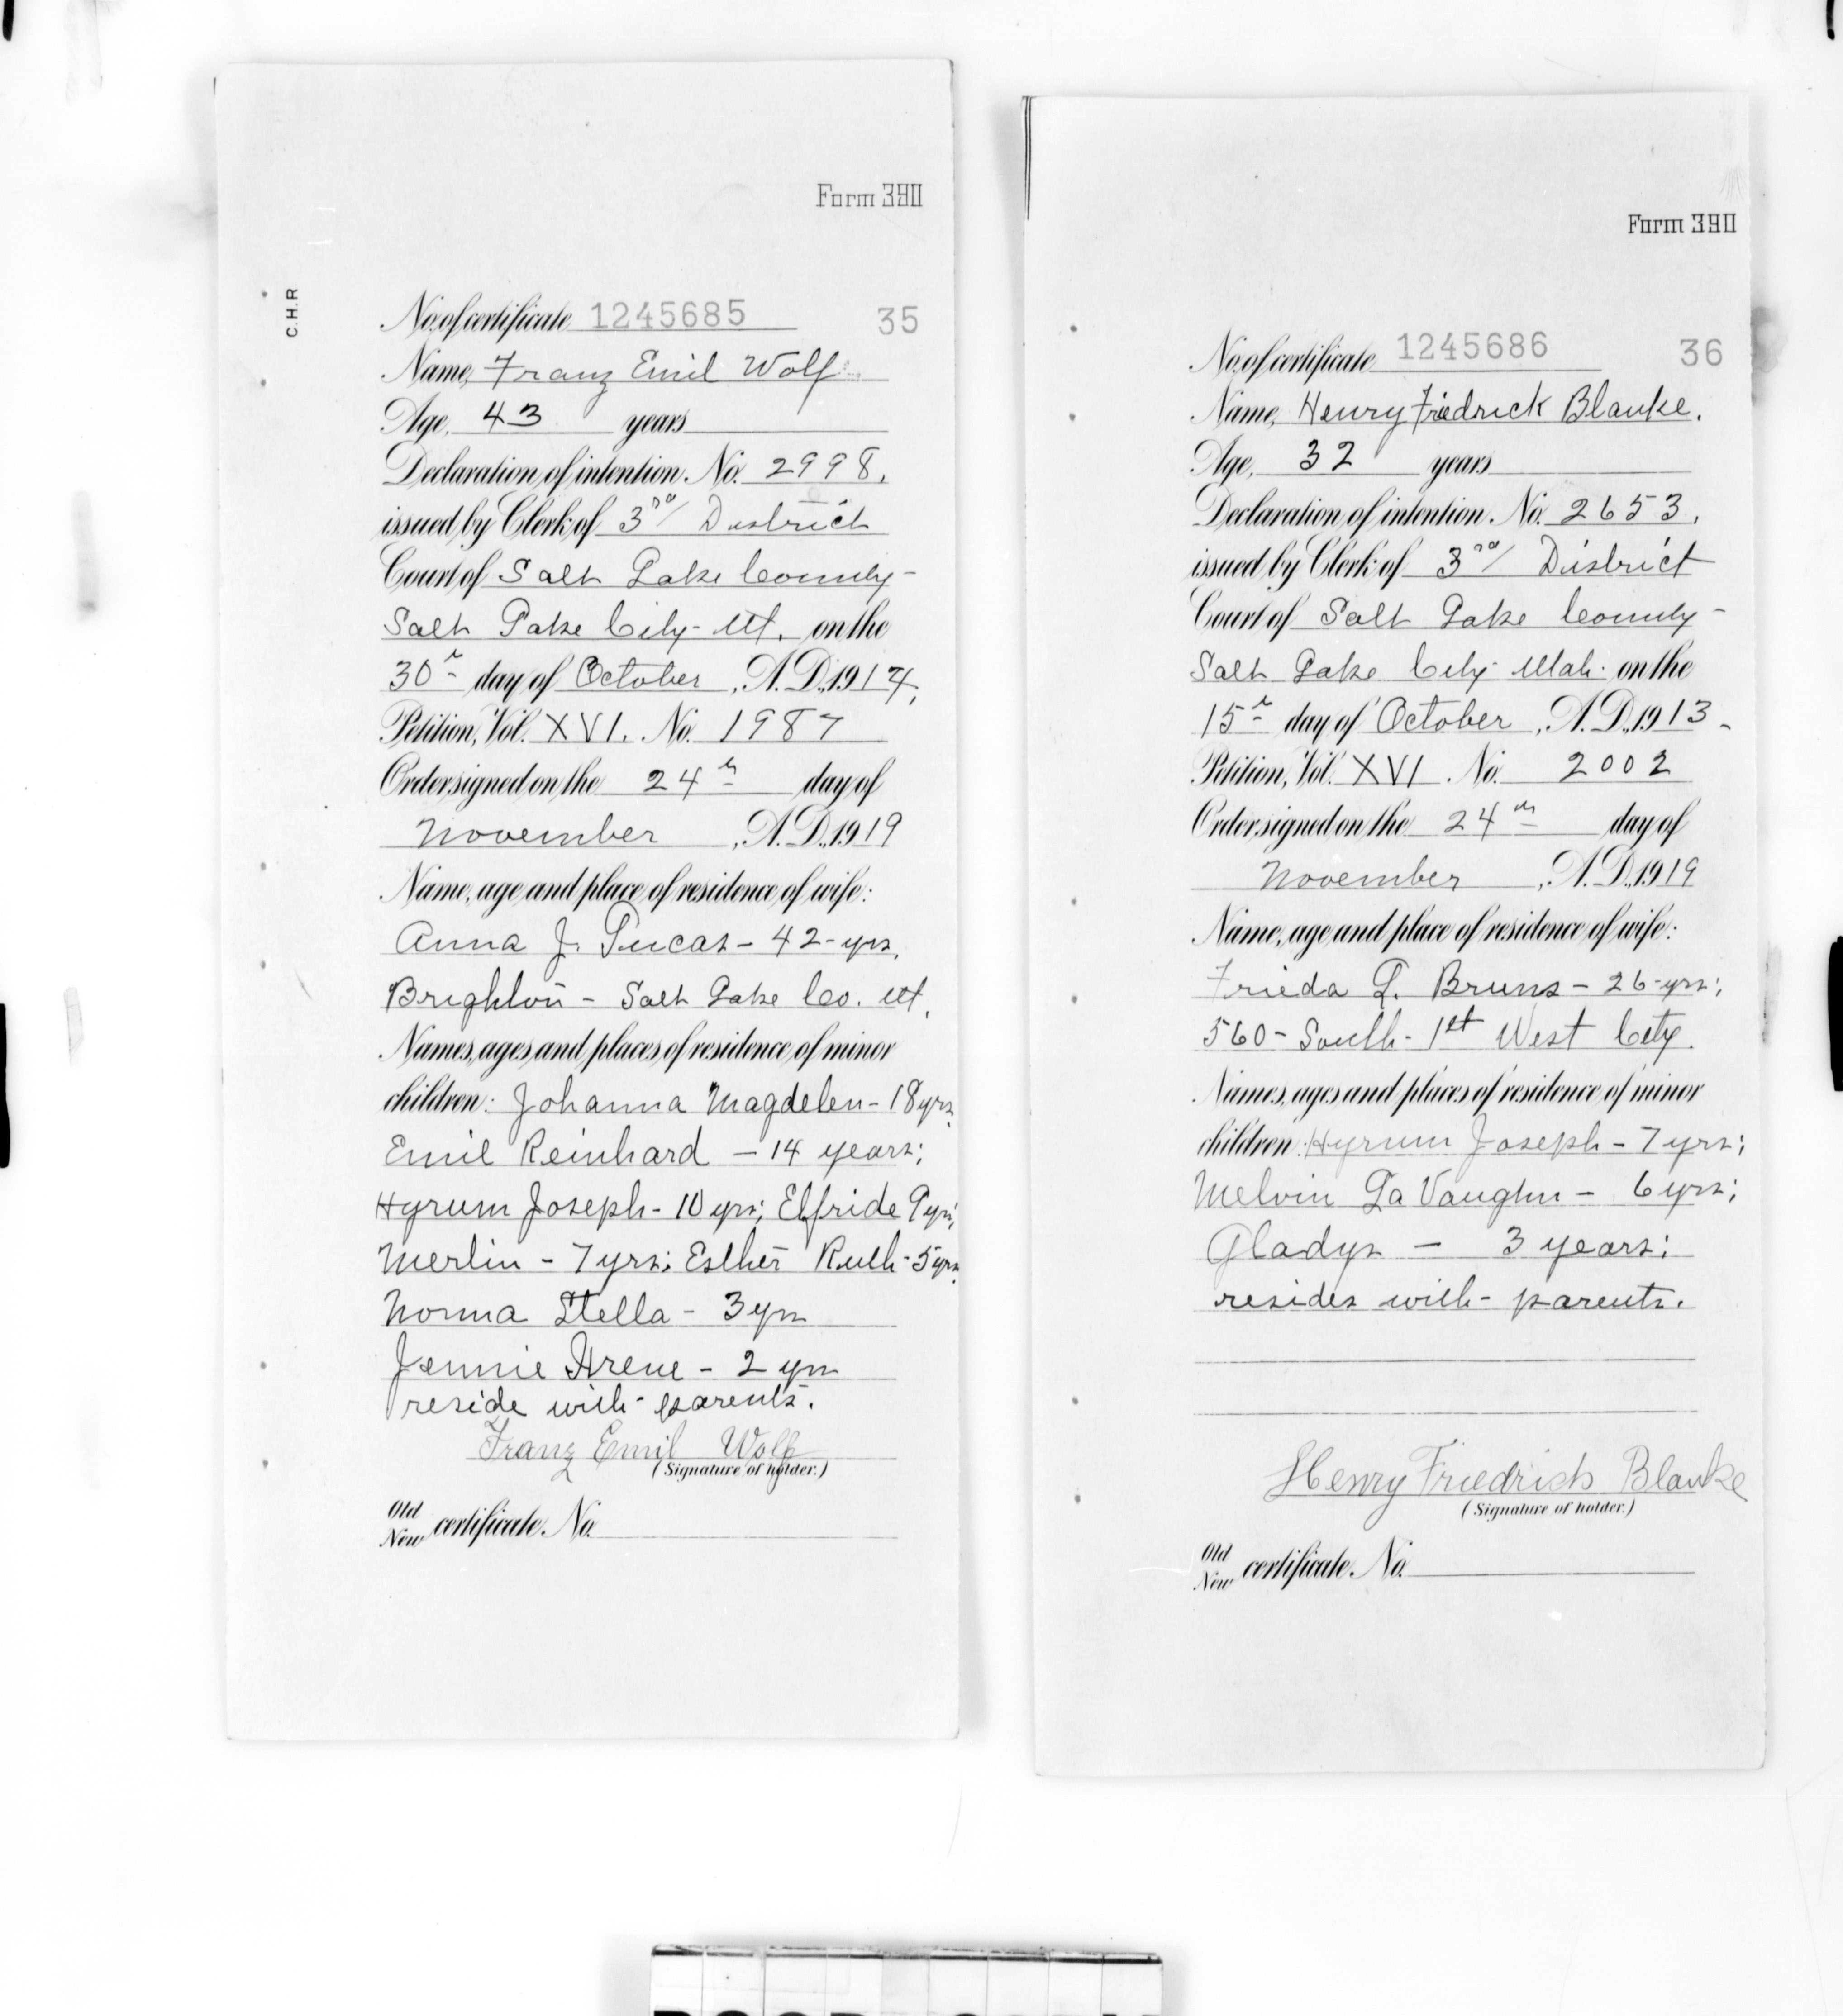 Form 390
C.H.R
No. of certificate 1245685 35
Name, Franz Emil Wolf
Age, 43 years
Declaration of intention, No. 2998.
issued by Clerk of 3rd District
Court of Salt Lake County-
Salt Lake City- Ut. on the
30th day of October, A.D., 1914,
Petition, Vol. XVI. No. 1987
Order signed on the 24th day of
November, A.D., 1919
Name, age and place of residence of wife:
Anna J. Lucas - 42-yrs.
Brighton - Salt Lake Co. Ut.
Names, ages and places of residence of minor
children: Johanna Magdelen - 18 yrs.
Emil Reinhard - 14 years;
Hyrum Joseph - 10 yrs; Elfride 9 yrs;
Merlin - 7 yrs; Esther Ruth - 5 yrs.
Norma Stella - 3 yrs
Jennie Irene - 2 yrs
reside with parents.
Franz Emil Wolf
(Signature of holder.)
Old
New certificate, No.
Form 390
No. of certificate 1245686 36
Name, Henry Friedrick Blanke.
Age, 32 years
Declaration of intention, No. 2653.
issued by Clerk of 3rd District
Court of Salt Lake County -
Salt Lake City Utah. on the
15th day of October, A.D., 1913 -
Petition, Vol. XVI. No. 2002
Order signed on the 24th day of
November, A.D., 1919
Name, age and place of residence of wife:
Frieda L. Bruns - 26-yrs;
560 - South - 1st West City.
Names, ages and places of residence of minor
children: Hyrum Joseph - 7 yrs;
Melvin La Vaughn - 6 yrs;
Gladys - 3 years;
resides with - parents.
Henry Friedrich Blanke
(Signature of holder.)
Old
New certificate, No.